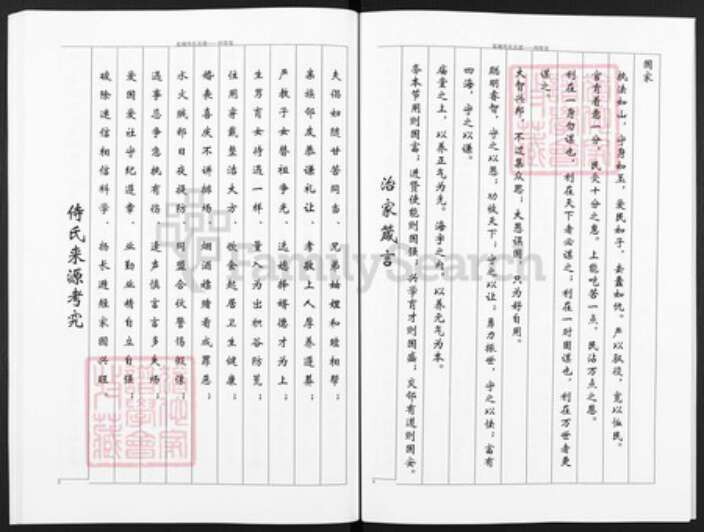 国家
执法如山,守身如玉,爱民如子,去蠹如仇。严以驭役,宽以恤民。
官肯着意一分,民受十分之惠。上能吃苦一点,民沾万点之恩。
利在一身勿谋也,利在天下者必谋之;利在一时固谋也,利在万世者更
谋之。
大智兴邦,不过集众思;大愚误国,只为好自用。
聪明睿智,守之以愚;功被天下,守之以让;勇力振世,守之以怯;富有
四海,守之以谦。
庙堂之上,以养正气为先。海宇之内,以养元气为本。
务本节用则国富;进贤使能则国强;兴学育才则国盛;交邻有道则国安。
治家箴言
夫倡妇随甘苦同当、兄 妯娌和睦相帮;
亲族邻友恭谦礼让、孝敬上人厚养薄葬;
严教子女替祖争光、选婿择媳德才为上;
生男育女待遇一样、量 为出积谷防荒;
住用穿戴整洁大方、饮食起居卫生健康;
婚丧喜庆不讲排场、烟酒嫖赌看成罪恶;
水火贼邪日夜提防、同盟合伙警惕假像;
遇事忌争忿执有伤、连声慎言言多失场;
爱国爱社守纪遵章、业勤业精自立自强;
破除迷信相信科学、扬长避短家国兴旺。
侍氏来源考究
FamilySearch